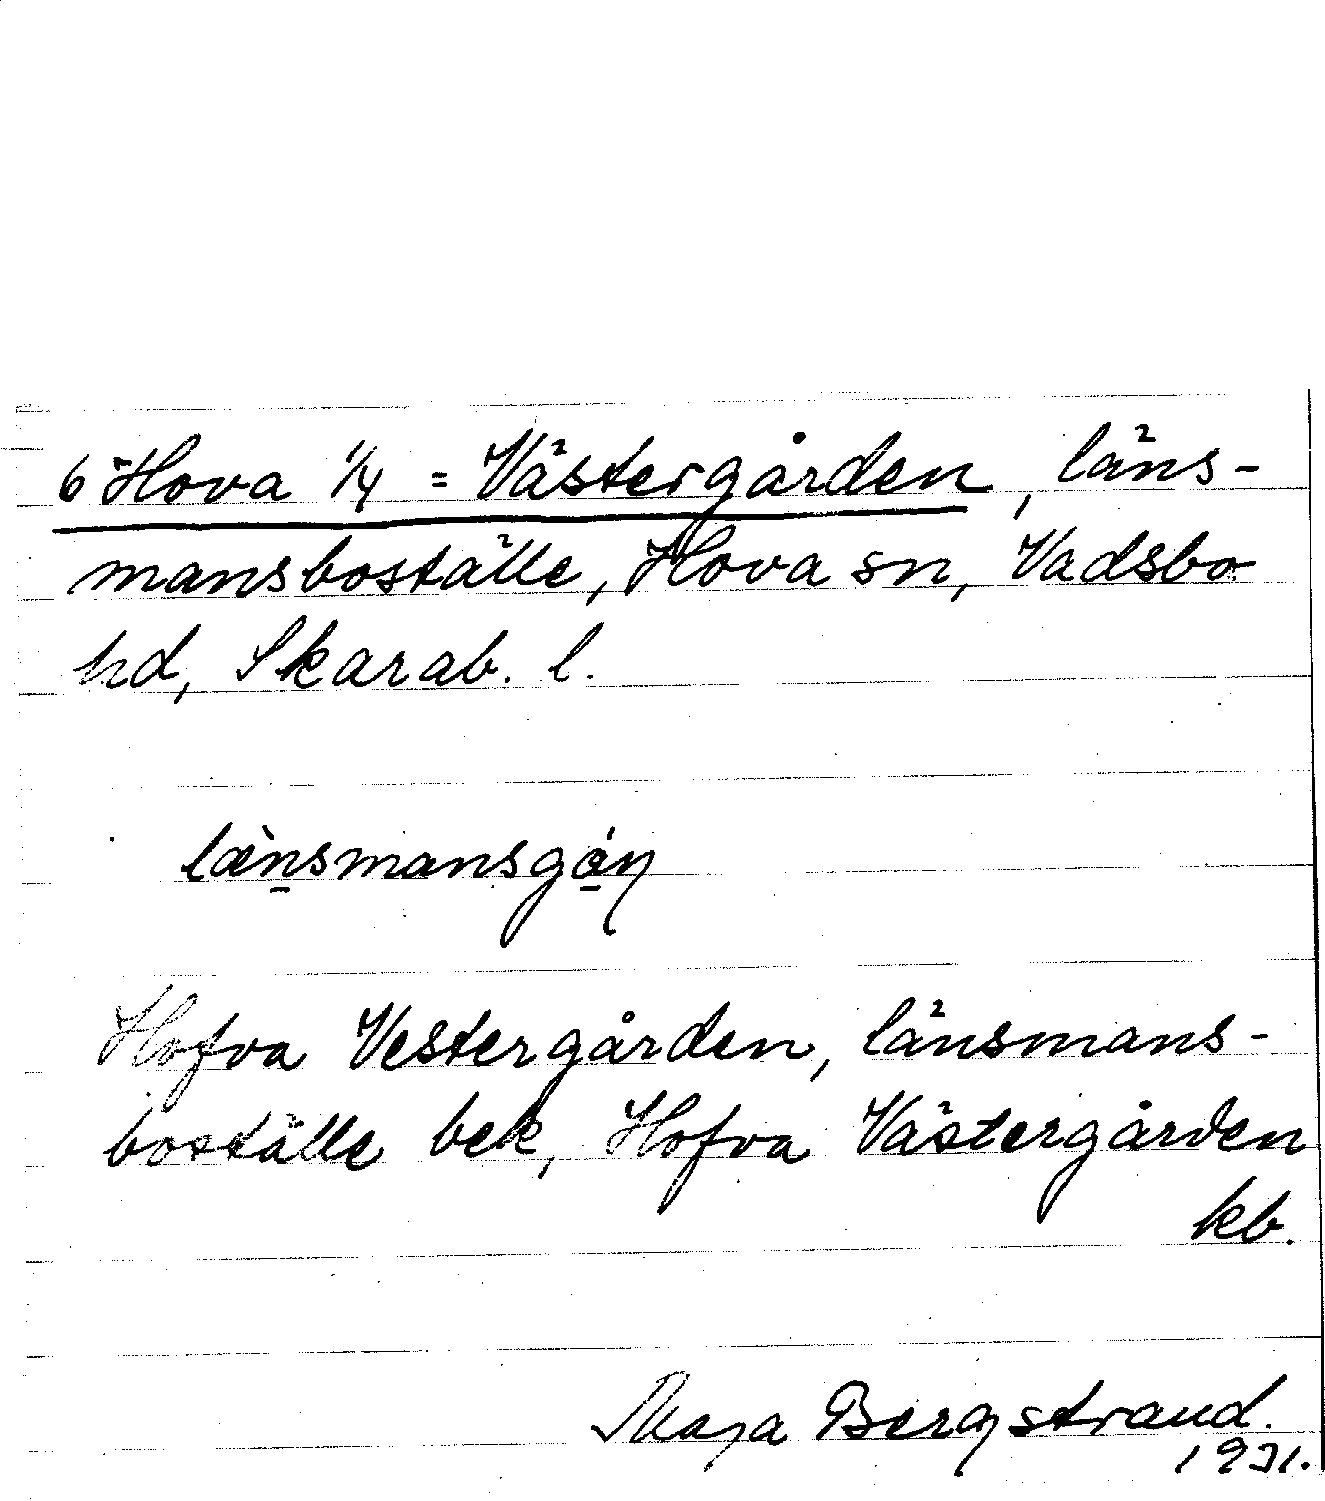 6 Hova 1/4 = Västergården, läns-
mansboställe, Hova sn, Vadsbo
hd, Skarab. l.
lænsmansgáɳ
Hofva Vestergården, länsmans-
boställe bek, Hofva Västergården
kb.
Maja Bergstrand.
1931.